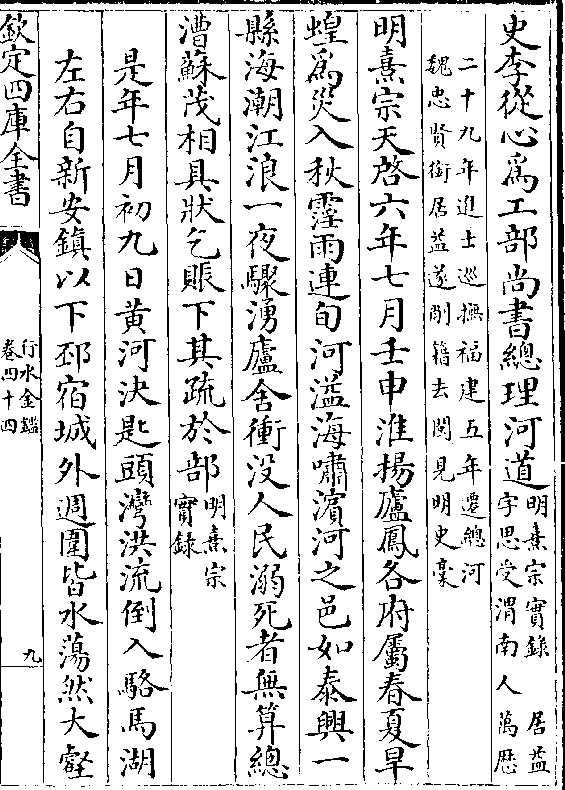 史李從心爲工部尚書總理河道
明熹宗實錄　居益
字思受渭南人　萬歷
二十九年進士巡撫福建五年遷總河
魏忠賢銜居益遂削籍去閱見明史藁
明熹宗天啓六年七月壬申淮揚廬鳳各府屬春夏旱
蝗爲災入秋霪雨連旬河溢海嘯濱河之邑如泰興一
縣海潮江浪一夜驟湧廬舍衝没人民溺死者無算總
漕蘇茂相具狀乞賑下其疏於部
明熹宗
實錄
是年七月初九日黄河決匙頭灣洪流倒入駱馬湖
左右自新安鎮以下邳宿城外週圍皆水蕩然大壑
欽定四庫全書
行水金鑑
卷四十四
九